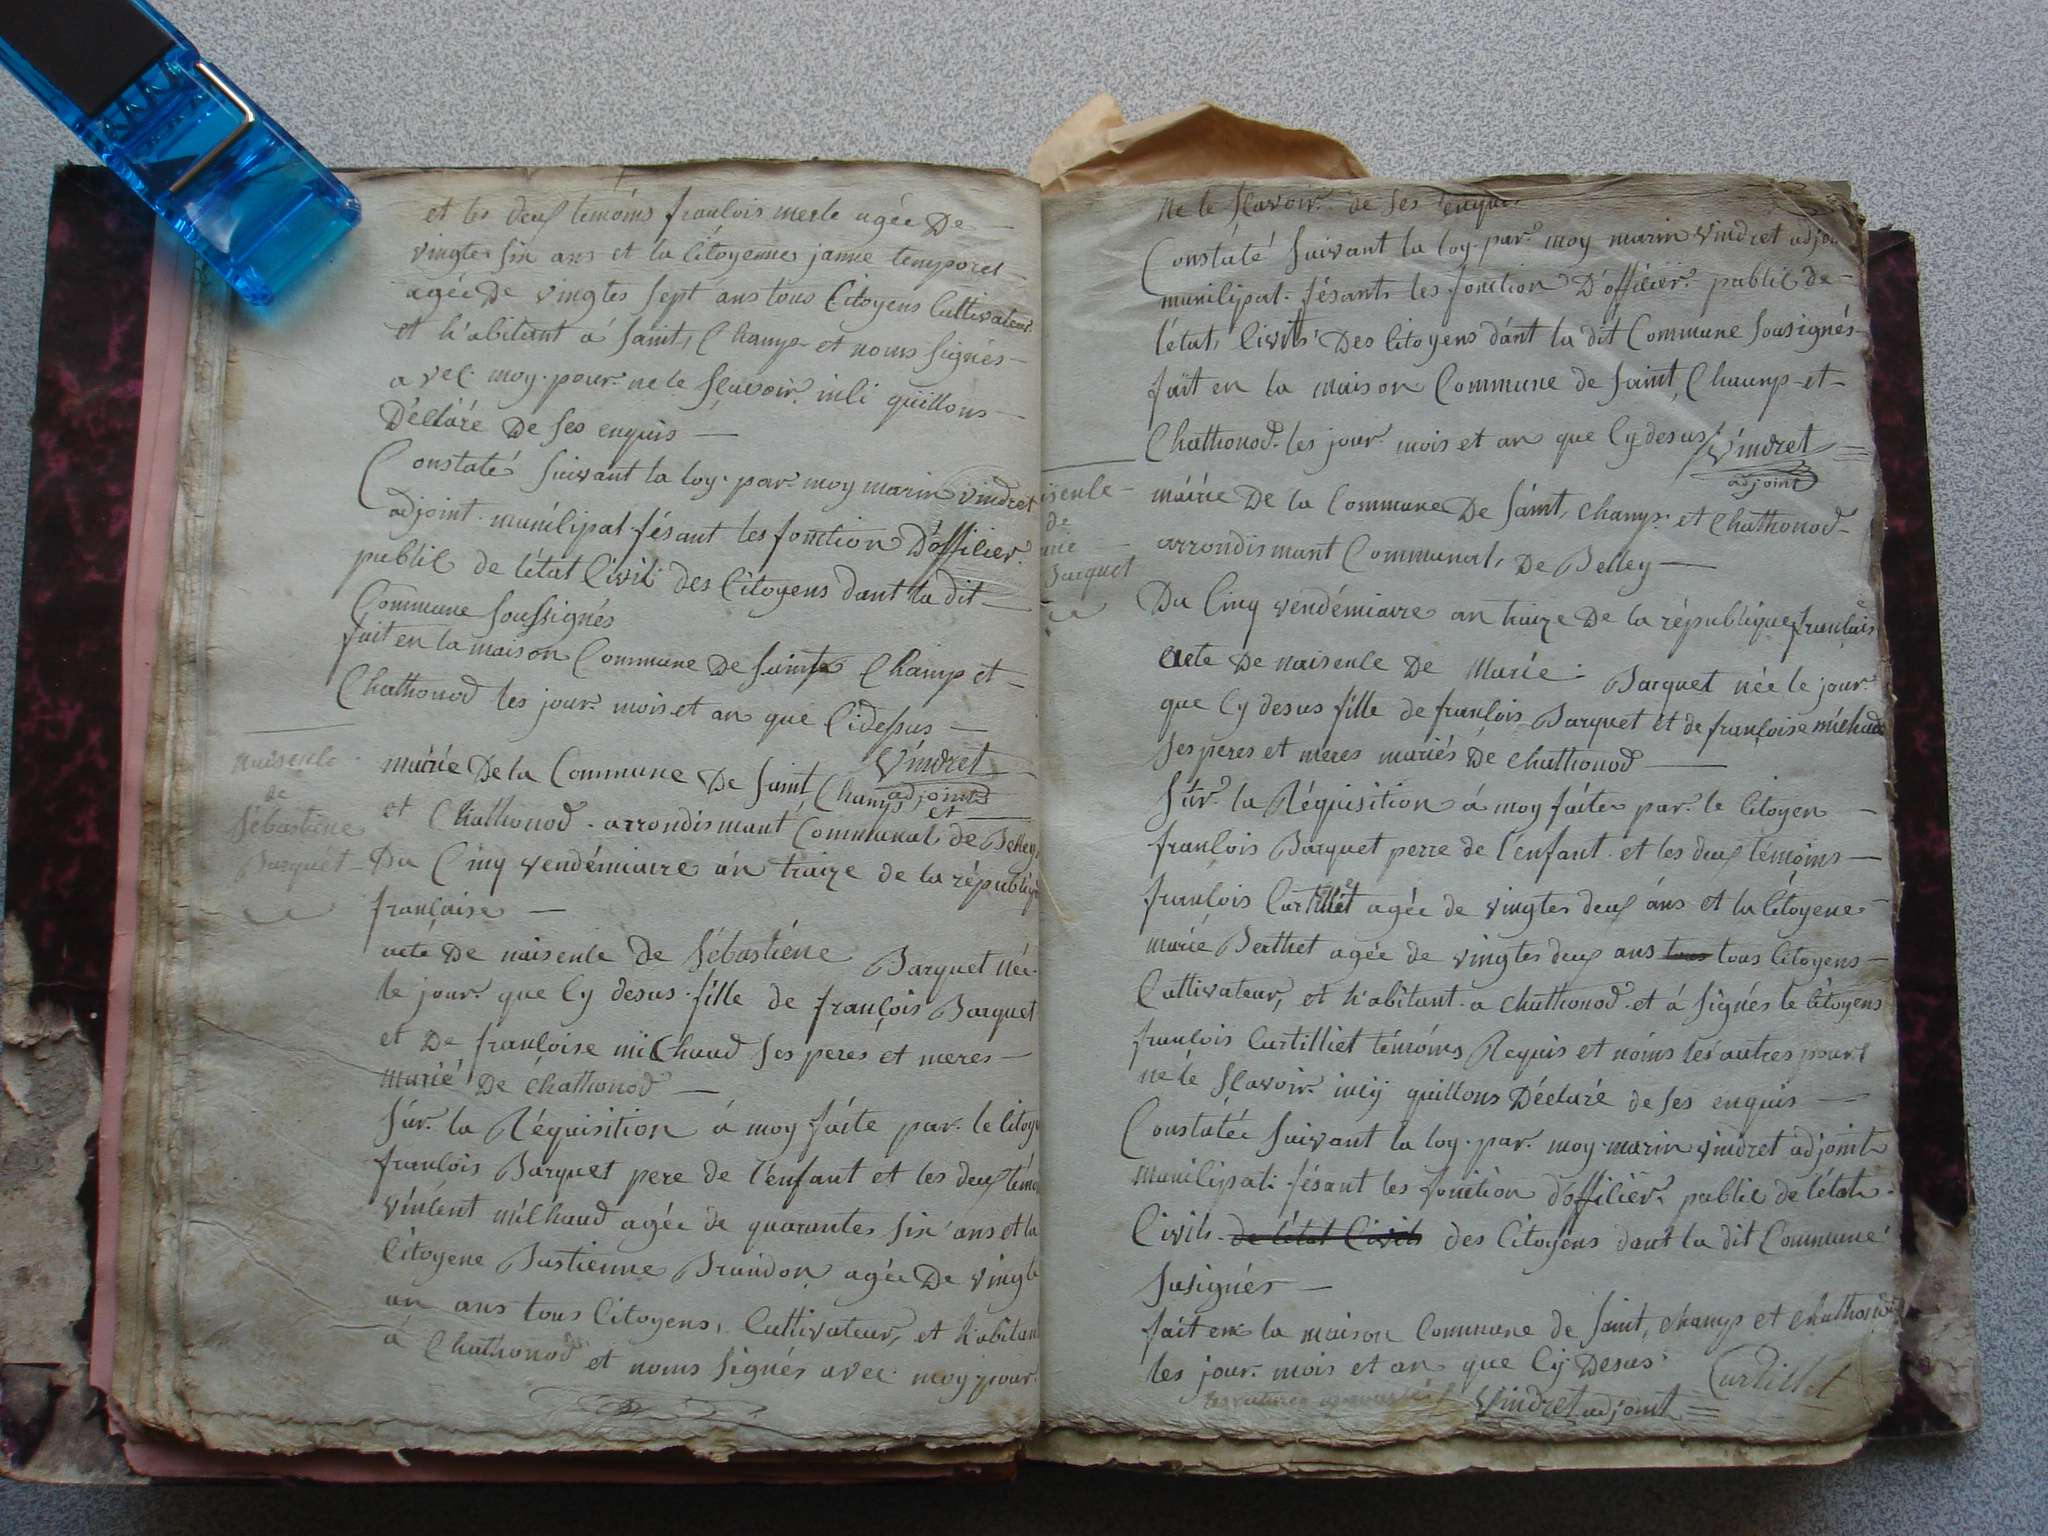 et les deux temoins francois merle agée De
vingtes six ans et la Citoyenne janne temporel
agée De vingtes sept ans tous Citoyens Cultivateur
et h'abitant a Saint, Champ et noms Signés
avec moy pour ne le Scavoir inli quillons
Déclaré De Ses enquis
Constaté Suivant la loy par moy marin vindret
adjoint municipal fésant les fonction D'officier
public de l'état Civil des Citoyens dant la dit
Commune Soussignés
fait en la maison Commune De Saint Champ et
Chathonod les jour mois et an que Cidessus
Vindret
adjoint
naisence
de
Sébastiene
Barquet
mairie De la Commune De Saint Champ et
et Chathonod arrondismant Communal de Belley
Du Cinq vendémiaire an traize de la républiq
francaise
acte De naisence de Sébastiéne Barquet née
le jour que Cy desus fille de francois Barquet
et De francoise michaud Ses peres et meres
marié De Chathonod
Sur la Réquisition á moy faite par le Citoy
francois Barquet pere de l'enfant et les deux témo
vincent michaud agée de quarantes six ans et la
Citoyene Bastienne Brandon agée De vingt
un ans tous Citoyens, Cultivateur, et h'abitant
á Chathonod et noms Signés avec moy pour
ne le Scavoir de Ses enquis
Constáté Suivant la loy par moy marin vindret adjoin
municipal fésants les fonction D'officier public de
l'état, Civils Des Citoyens dant la dit Commune Sousignés
fait en la maison Commune de Saint, Champ et
Chathonod les jour mois et an que Cy desus Vindret
adjoint
isence
de
rie
Barquet
mairie De la Commune De Saint, Champ et Chathonod
arrondismant Communal, De Belley
Du Cinq vendémiaire an traize De la république francaise
acte De naisence De Marie Barquet née le jour
que Cy desus fille de francois Barquet et de francoise michaud
Ses peres et meres mariés De Chathonod
Sur la Réquisition á moy faite par le Citoyen
francois Barquet perre de l'enfant et les deux témoins
francois Curtillet agée de vingtes deux áns et la Citoyene
marie Berthet agée de vingtes deux ans tous tous Citoyens
Cultivateur, et h'abitant a Chathonod et á Signés le Citoyens
francois Curtilliet témoins Requis et noms les autres pour
ne le Scavoir incij quillons Déclaré de Ses enquis
Constátée Suivant la loy par moy marin vindret adjoint
municipal fésant les fonction d'officier public de l'état
Civils de l'état Civils des Citoyens dant la dit Commune
Susignés
fait en la maison Commune de Saint, Champ et Chathonod
les jour mois et an que Cy Desus Curtillet
Vindret adjoint